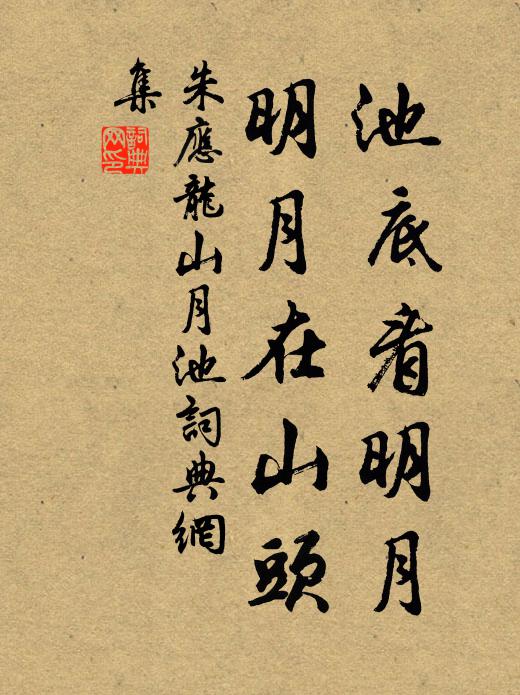 池底看明月
明月在山頭
朱應龍山月池詞典網
集
詞典
网印